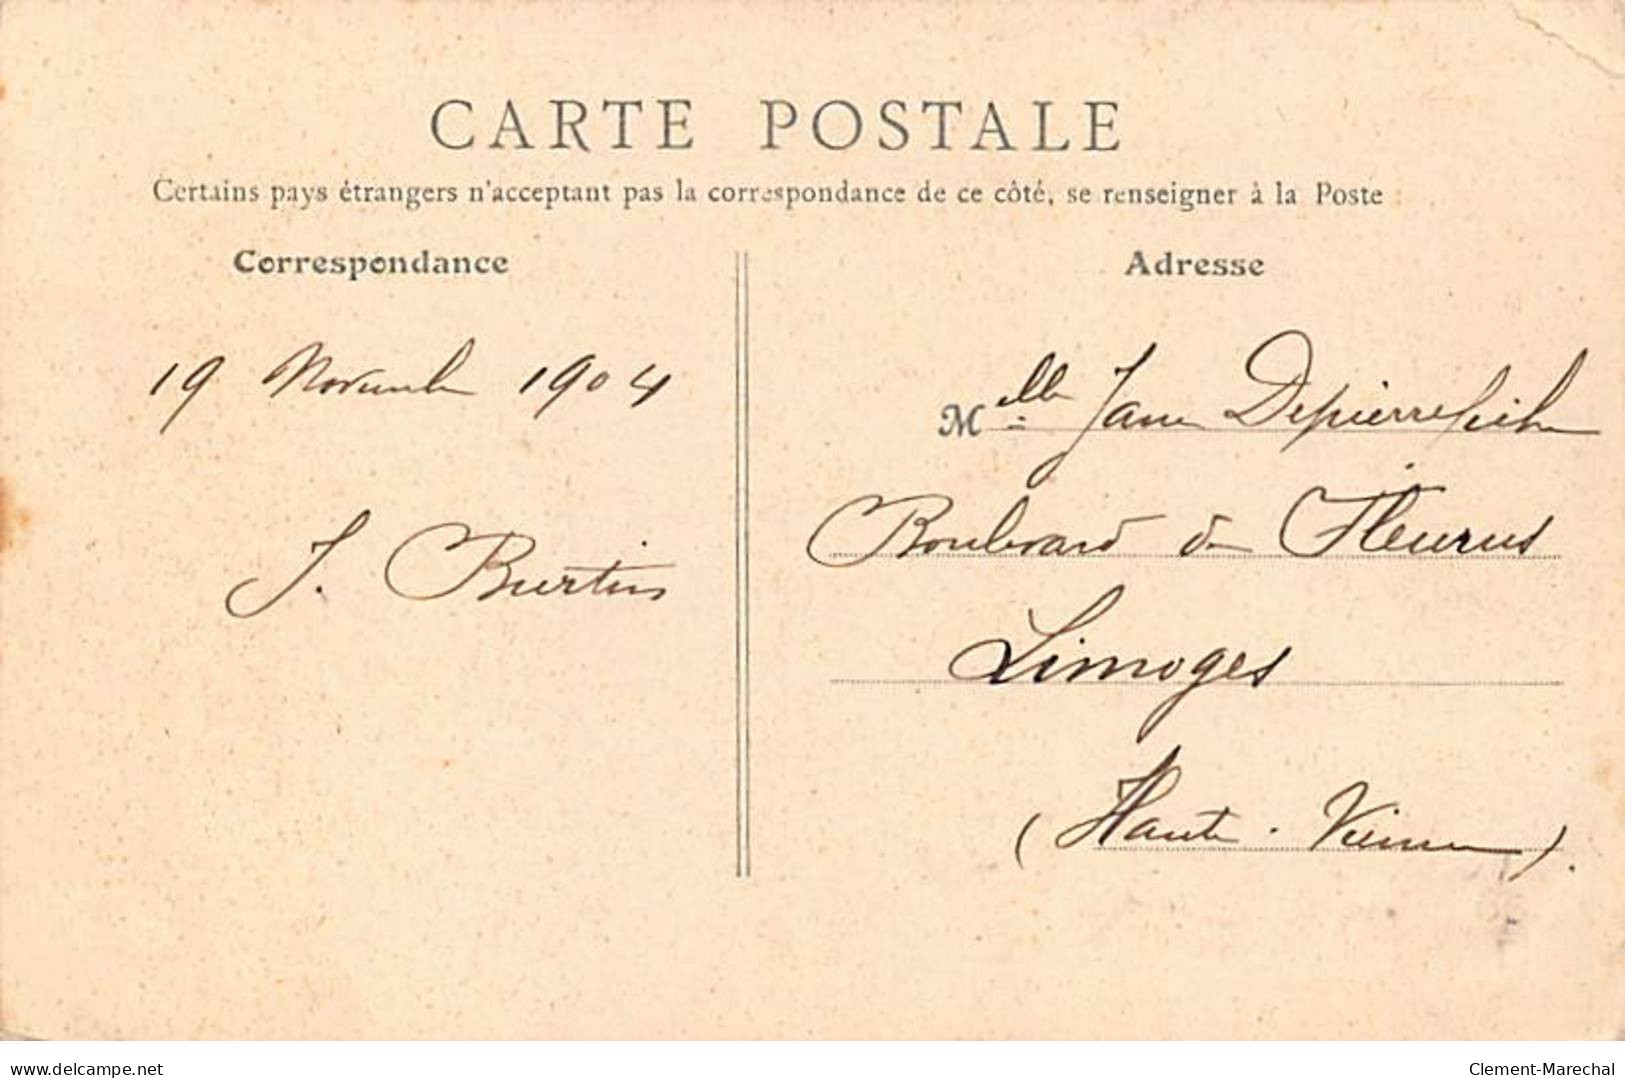 CARTE POSTALE
Certains pays étrangers n'acceptant pas la correspondance de ce côté, se renseigner à la Poste
Correspondance
Adresse
19 Novembre 1904
J. Burtin
Melle Jane Depierrefiche
Boulevard de Fleurus
Limoges
(Haute-Vienne).
delcampe.net
Clement-Marechal